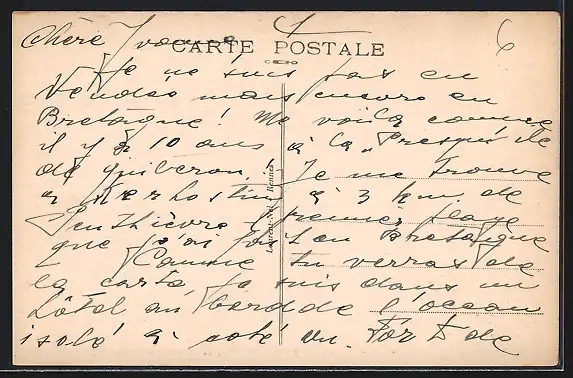 Chère Yvonne
CARTE POSTALE
6
Je ne suis pas en
Vendée mais encore en
Bretagne! Me voilà comme
il y a 10 ans à la Presqu'ile
de Quiberon. Je me trouve
à Kerhostin à 3 km. de
Penthièvre première plage
que j'ai fait en Bretagne
Comme tu verras de
la carte je suis dans un
hôtel au bord de l'océan
isolé à coté du Fort de
Laurent-Nel, Rennes